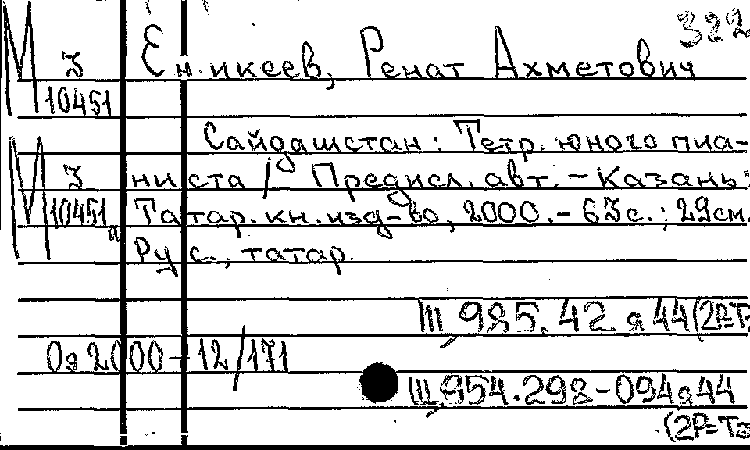 322
М З Еникеев, Ренат Ахметович
10451
Сайдашстан: Тетр. юного пиа-
М З ниста / Предисл. авт. - Казань:
10451а Татар. кн. изд-во, 2000. - 63с.; 29см.
Рус., татар.
Щ985.42.я44(2Р=Т
Оя2000-12/171
Щ954.298-094я44
(2Р=Та